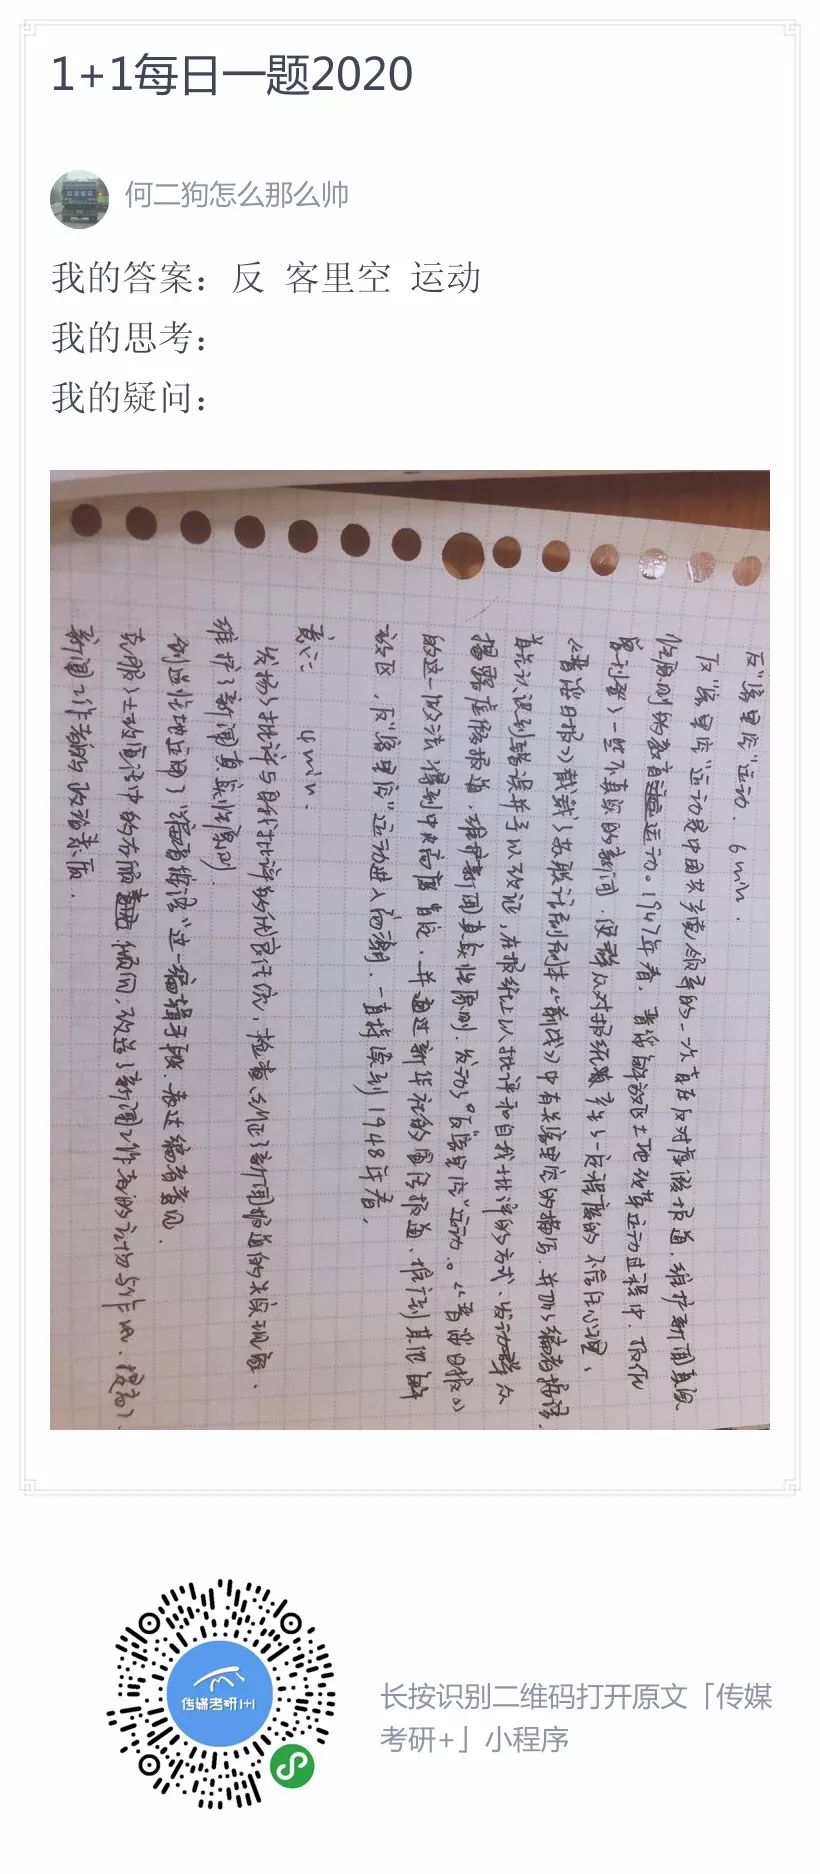 1+1每日一题2020
何二狗怎么那么帅
我的答案：反 客里空 运动
我的思考：
我的疑问：
反"客里空"运动. 6min.
反"客里空"运动是中国共产党领导的一次旨在反对虚假报道,维护新闻真实
性原则的教育运动。1947年春,晋绥解放区土地改革运动过程中,
客刊者)一些不真实的新闻,使群众对报纸产生了一定程度的不信任心理,
《晋绥日报》载了苏联话剧剧本《前线》中有关客里空的描写,并加了编者按语,
认识到错误并予以改正,在报纸上以批评和自我批评的方式,发动群众
揭露虚假报道,维护新闻真实性原则,发动了"反客里空"运动。《晋绥日报》
的这一做法得到中共高度肯定,并通过新华社的宣传报道,推行到其他解
放区,反"客里空"运动进入高潮,一直持续到1948年春,
意义: 4min.
发扬了批评与自我批评的优良作风,检查纠正了新闻报道的失实现象.
维护了新闻真实性原则.
创造性地运用了"编者按语"这一编辑手段,表达编者意见.
克服了土改宣传中的右倾倾向,改造了新闻工作者的立场与作风,提高了
新闻工作者的政治素质.
传媒考研1+1
长按识别二维码打开原文「传媒
考研+」小程序